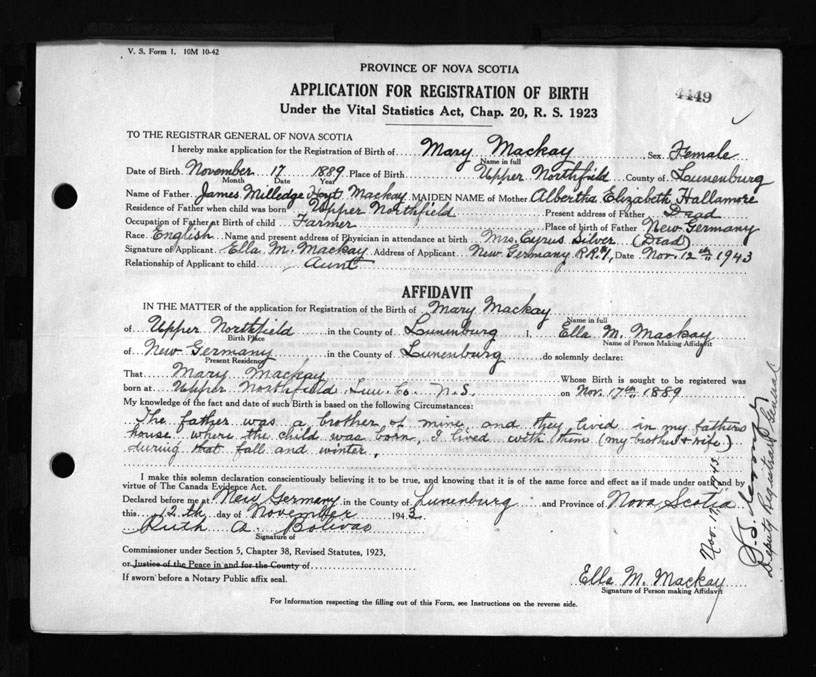 V. S. Form 1. 10M 10-42
PROVINCE OF NOVA SCOTIA
4449
APPLICATION FOR REGISTRATION OF BIRTH
Under the Vital Statistics Act, Chap. 20, R. S. 1923
TO THE REGISTRAR GENERAL OF NOVA SCOTIA
I hereby make application for the Registration of Birth of Mary Mackay Sex Female
Name in full
Date of Birth November 17 1889 Place of Birth Upper Northfield County of Lunenburg
Month Date Year
Name of Father James Milledge Hoyt Mackay MAIDEN NAME of Mother Albertha Elizabeth Hallamore
Residence of Father when child was born Upper Northfield Present address of Father Dead
Occupation of Father at Birth of child Farmer Place of birth of Father New Germany
Race English Name and present address of Physician in attendance at birth Mrs. Cyrus Silver (Dead)
Signature of Applicant Ella M. Mackay Address of Applicant New Germany R.R.#1, Date Nov. 12th 1943
Relationship of Applicant to child Aunt
AFFIDAVIT
IN THE MATTER of the application for Registration of the Birth of Mary Mackay
Name in full
of Upper Northfield in the County of Lunenburg I, Ella M. Mackay
Birth Place Name of Person Making Affidavit
of New Germany in the County of Lunenburg do solemnly declare:
Present Residence
That Mary Mackay Whose Birth is sought to be registered was
born at Upper Northfield Lun. Co. N.S. on Nov. 17th 1889
My knowledge of the fact and date of such Birth is based on the following Circumstances:
The father was a brother of mine, and they lived in my fathers
house where the child was born, I lived with them (my brother & wife)
during that fall and winter.
I make this solemn declaration conscientiously believing it to be true, and knowing that it is of the same force and effect as if made under oath and by
virtue of The Canada Evidence Act.
Declared before me at New Germany in the County of Lunenburg and Province of Nova Scotia
this 12th day of November 1943
Ruth A.
Signature of
Commissioner under Section 5, Chapter 38, Revised Statutes, 1923,
or Justice of the Peace in and for the County of
If sworn before a Notary Public affix seal.
Ella M. Mackay
Signature of Person making Affidavit
For Information respecting the filling out of this Form, see Instructions on the reverse side.
Nov. 1943
Deputy Registrar General